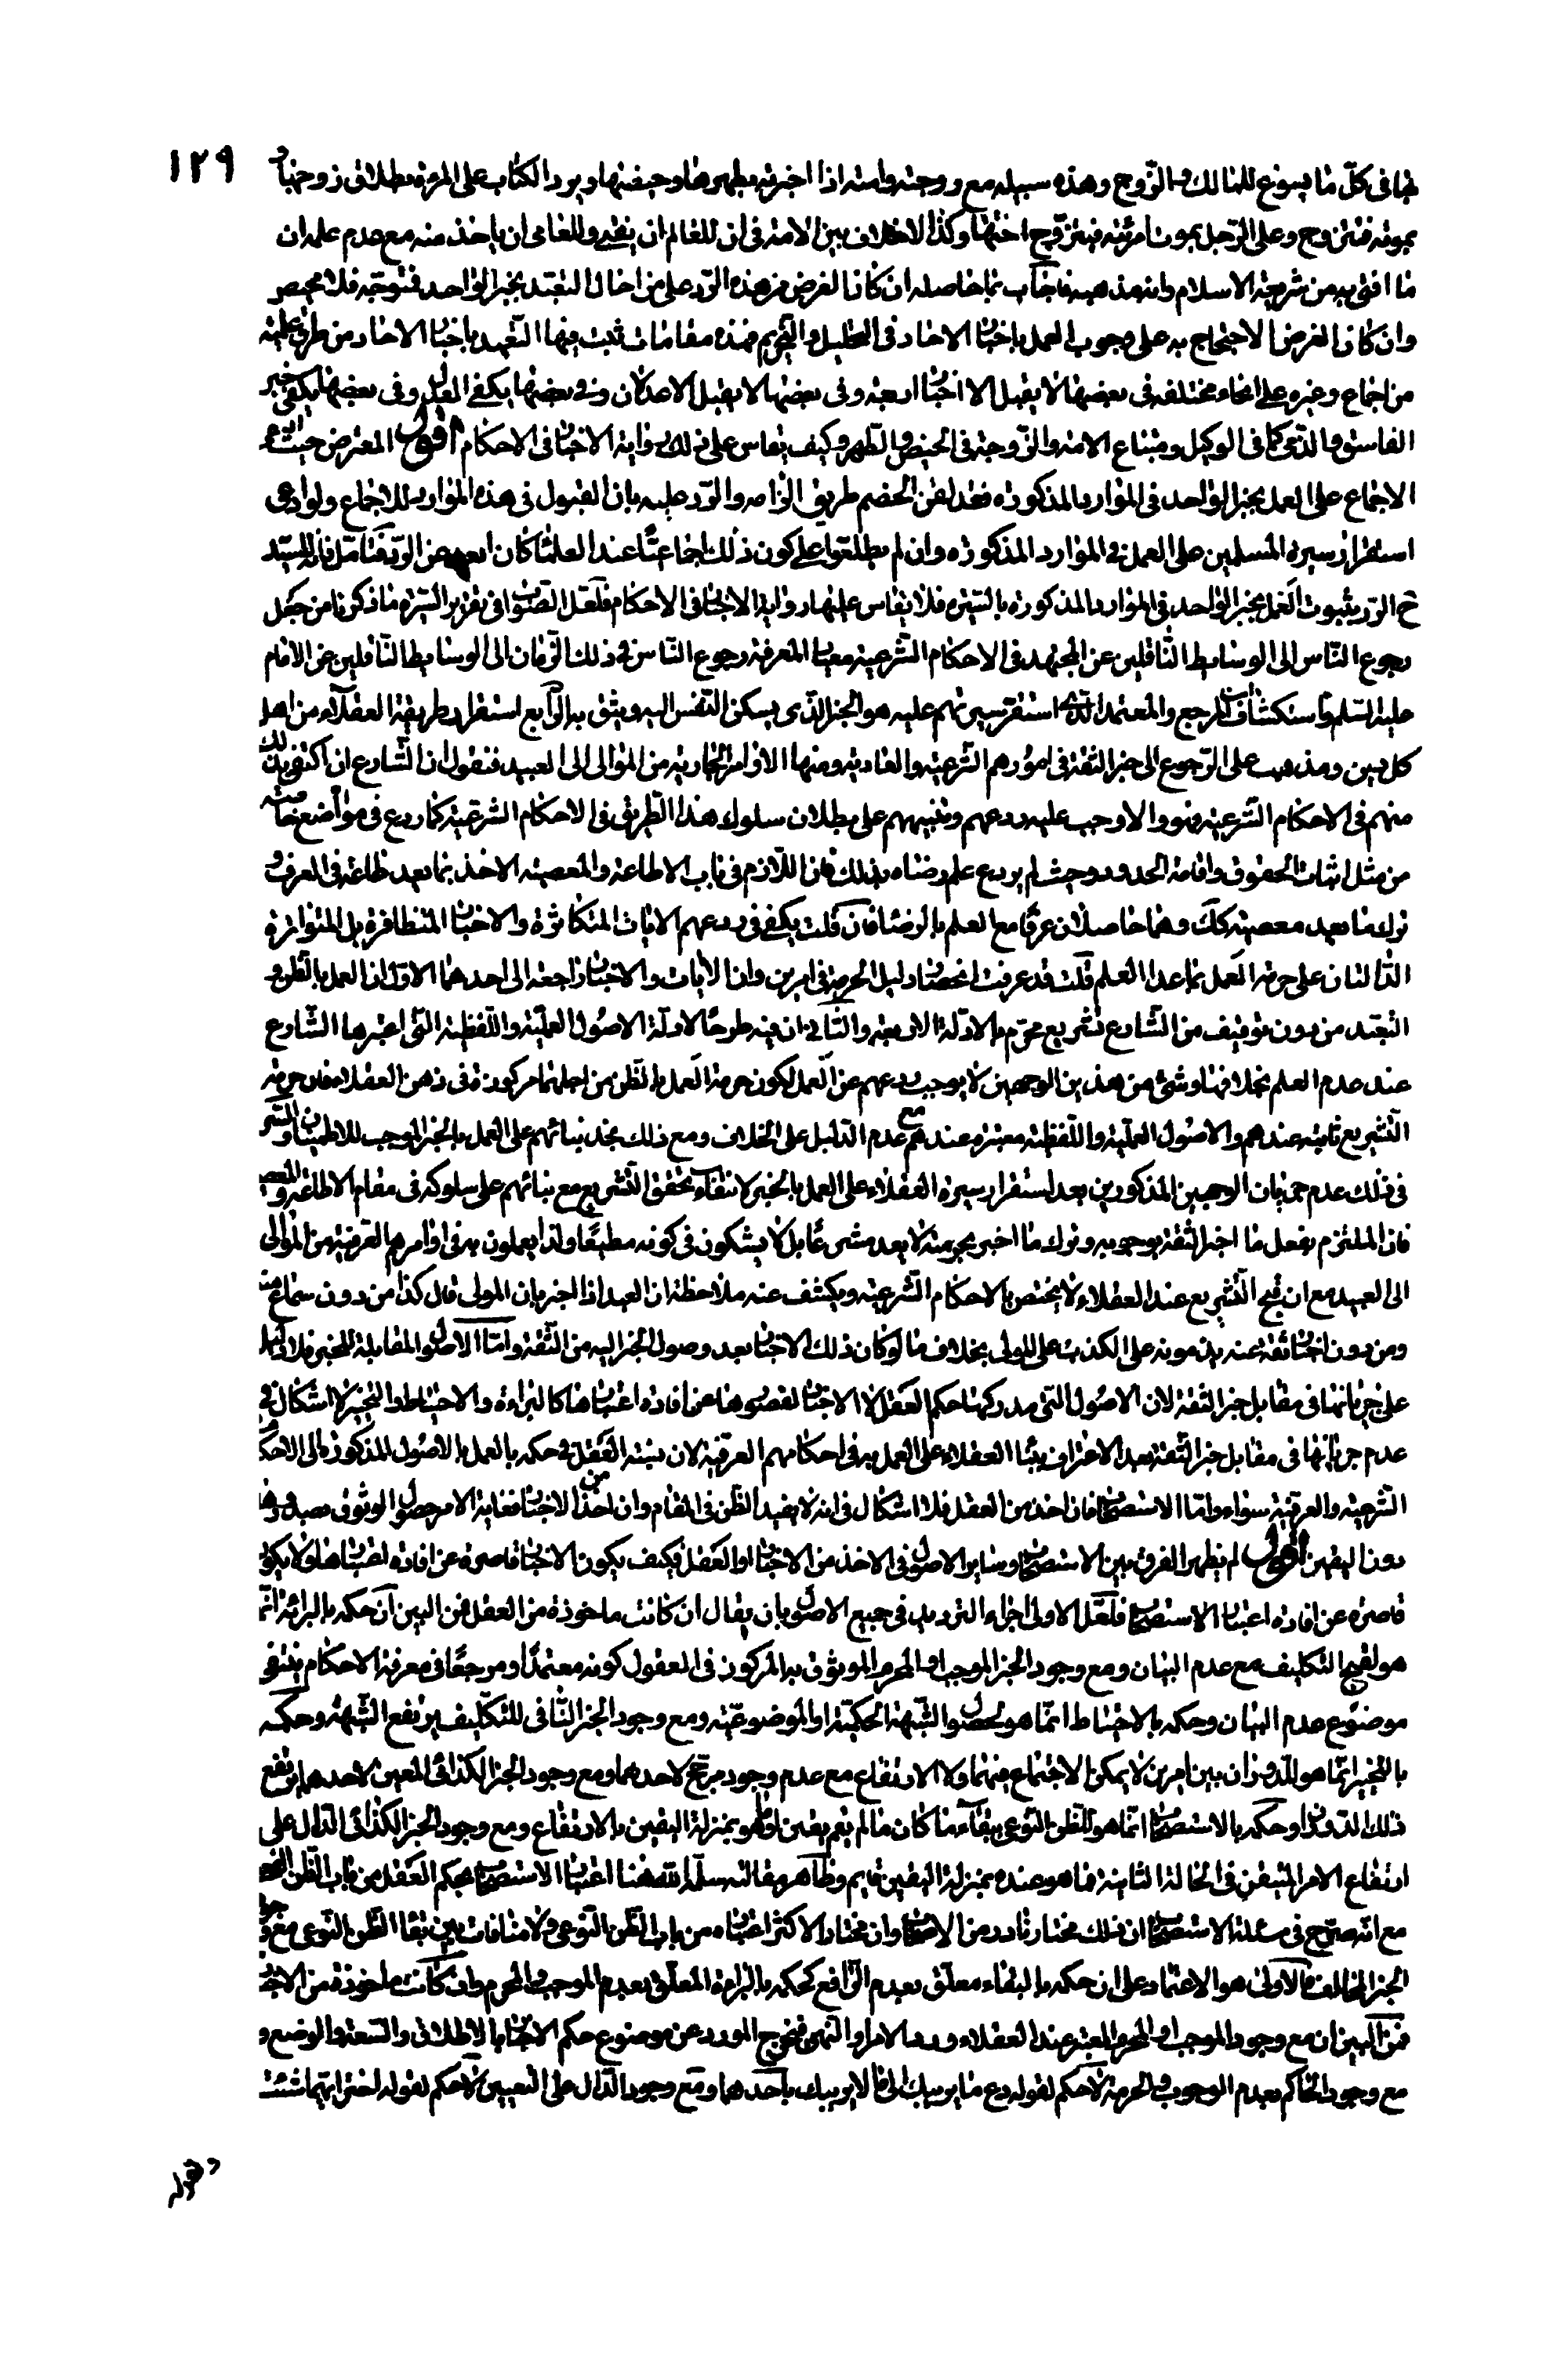 ١٢٩
لها فى كلّ ما يسوغ للمالك والزّوج وهذه سبيله مع زوجته وامته اذا اخبرته بطهرها وحيضها ويرد الكتاب على المرئة بطلاق زوجها او
بموته فتتزوج وعلى الرّجل بموت امرئته فيتزوّج اختها وكذا لا خلاف بين الامّة فى ان للعالم ان يفتى وللعامى ان ياخذ منه مع عدم علم ان
ما افتى به من شريعة الاسلام وانه مذهبه فاجاب بما حاصله ان كان الغرض من هذه الرّد على من احال التعبّد بخبر الواحد فمتوجّه فلا محيص
وان كان الغرض الاحتجاج به على وجوب العمل باخبار الاحاد فى التحليل والتحريم فهذه مقامات ثبت فيها التعبد باخبار الاحاد من طرق علمية
من اجماع وغيره على انحاء مختلفة فى بعضها لا يقبل الا اخبار اربعة وفى بعضها لا يقبل الا عدلان وفى بعضها يكفى العدل وفى بعضها يكفى خبر
الفاسق والذمى كما فى الوكيل ومبتاع الامة والزّوجة فى الحيض والطهر وكيف يقاس على ذلك رواية الاخبار فى الاحكام اقول المعترض حيث ادعى
الاجماع على العمل بخبر الواحد فى الموارد المذكورة فقد لقن الخصم طريق الزامه والرّد عليه بان القبول فى هذه الموارد للاجماع ولو ادعى
استقرار سيرة المسلمين على العمل فى الموارد المذكورة وان لم يطلعوا على كون ذلك اجماعيّا عند العلماء كان ابعد عن الردّ فتامّل فانّ للسيّد
ح الرّد بثبوت العمل بخبر الواحد فى الموارد المذكورة بالسّيرة فلا يقاس عليها رواية الاخبار فى الاحكام فلعل الصّواب فى تقرير السّيرة ما ذكرنا من جعل
رجوع النّاس الى الوسايط النّاقلين عن المجتهد فى الاحكام الشّرعية معيار المعرفة رجوع النّاس فى ذلك الزّمان الى الوسايط النّاقلين عن الامام
عليه السّلم واستكشاف ان المرجع والمعتمد الذى استقر سيرتهم عليه هو الخبر الذى يسكن النّفس اليه ويثق به الرّابع استقرار طريقة العقلاء من اهل
كل دين ومذهب على الرّجوع الى خبر الثقة فى امورهم الشّرعية والعادية ومنها الاوامر الجارية من الموالى الى العبيد فنقول ان الشّارع ان اكتفى بذلك
منهم فى الاحكام الشّرعية فهو والا وجب عليه ردعهم وتنبيههم على بطلان سلوك هذا الطّريق فى الاحكام الشّرعيّة كما ردع فى مواضع خاصّه
من مثل اثبات الحقوق واقامة الحدود وحيث لم يردع علم رضاه بذلك فان اللّازم فى باب الاطاعة والمعصية الاخذ بما يعد طاعة فى العرف و
ترك ما يعد معصية كك وهما حاصلان عرفا مع العلم بالرضا فان قلت يكفى فى ردعهم الايات المتكاثرة والاخبار المتظافرة بل المتواترة
الدّالتان على حرمة العمل بما عدا العلم قلت قد عرفت انحصار دليل الحرمة فى امرين وان الايات والاخبار راجعة الى احدهما الاوّل ان العمل بالظن و
التعبّد من دون توقيف من الشّارع تشريع محرّم بالادلّة الاربعة والثّانى ان فيه طرحا لادلّة الاصول العمليّة واللّفظية التى اعتبرها الشّارع
عند عدم العلم بخلافها وشئ من هذين الوجهين لا يوجب ردعهم عن العمل لكون حرمة العمل بالظن من اجلهما مركوزة فى ذهن العقلاء فان حرمة
التّشريع ثابتة عندهم والاصول العمليّة واللّفظية معتبرة عندهم مع عدم الدّليل على الخلاف ومع ذلك نجد بنائهم على العمل بالخبر الموجب للاطمينان والسّر
فى ذلك عدم جريان الوجهين المذكورين بعد استقرار سيرة العقلاء على العمل بالخبر لانتفاء تحقق التّشريع مع بنائهم على سلوكه فى مقام الاطاعة والمعصية
فان الملتزم بفعل ما اخبر الثقة بوجوبه وترك ما اخبر بحرمته لا يعد مشرعا بل لا يشكون فى كونه مطيعا ولذا يعملون به فى اوامرهم العرفية من الموالى
الى العبيد مع ان قبح التّشريع عند العقلاء لا يختص بالاحكام الشّرعية ويكشف عنه ملاحظة ان العبد اذا اخبر بان المولى قال كذا من دون سماع منه
ومن دون اخبار ثقة عنه يذمونه على الكذب على المولى بخلاف ما لو كان ذلك الاخبار بعد وصول الخبر اليه من الثقة وامّا الاصول المقابلة للخبر فلا دليل
على جريانها فى مقابل خبر الثقة لان الاصول التى مدركها حكم العقل لا الاخبار لقصورها عن افادة اعتبارها كالبراءة والاحتياط والتخيير لا اشكال فى
عدم جريانها فى مقابل خبر الثّقة بعد الاعتراف ببناء العقلاء على العمل به فى احكامهم العرفية لان نسبة العقل فى حكمه بالعمل بالاصول المذكورة الى الاحكام
الشّرعية والعرفية سواء وامّا الاستصحاب فان اخذ من العقل فلا اشكال فى انه لا يفيد الظّن فى المقام وان اخذ من الاخبار فغاية الامر حصول الوثوق بصدورها
دون اليقين اقول لم يظهر الفرق بين الاستصحاب وساير الاصول فى الاخذ من الاخبار او العقل فكيف يكون الاخبار قاصرة عن افادة اعتبارها ولا يكون
قاصرة عن افادة اعتبار الاستصحاب فلعلّ الاولى اجراء الترديد فى جميع الاصول بان يقال ان كانت ماخوذة من العقل فمن البين ان حكمه بالبراءة انّما
هو لقبح التكليف مع عدم البيان ومع وجود الخبر الموجب او المحرم الموثوق به المركوز فى العقول كونه معتمدا ومرجعا فى معرفة الاحكام ينتفى
موضوع عدم البيان وحكمه بالاحتياط انّما هو لحصول الشّبهة الحكميّة او الموضوعيّة ومع وجود الخبر النّافى للتكليف يرتفع الشّبهة وحكمه
بالتخيير انّما هو للدوران بين امرين لا يمكن الاجتماع فيهما ولا الارتفاع مع عدم وجود مرجح لاحدهما ومع وجود الخبر الكذائى المعين لاحدهما يرتفع
ذلك الدّوران وحكمه بالاستصحاب انّما هو للظّن النّوعى ببقاء ما كان ما لم يقم يقين او ما هو بمنزلة اليقين بالارتفاع ومع وجود الخبر الكذائى الدّال على
ارتفاع الامر المتيقن فى الحالة الثانية فما هو عنده بمنزلة اليقين قايم وظاهر مقالته سلّمه اللّه هنا اعتبار الاستصحاب بحكم العقل من باب الظّن
مع انّه صرّح فى مسئلة الاستصحاب ان ذلك مختار نادر من الاصحاب وان مختار الاكثر اعتباره من باب الظّن النّوعى ولا منافات بين بقاء الظّن النّوعى مع وجود
الخبر المخالف فالاولى هو الاعتماد على ان حكمه بالبقاء معلّق بعدم الرّافع كحكمه بالبراءة المعلّق بعدم الموجب والمحرم وان كانت ماخوذة من الاخبار
فمن البين ان مع وجود الموجب او المحرم المعتبر عند العقلاء ورد الامر او النّهى فيخرج المورد عن موضوع حكم الاخبار بالاطلاق والسّعة والوضع و
مع وجود الحاكم بعدم الوجوب والحرمة لا حكم لقوله دع ما يريبك الى ما لا يريبك باحدهما ومع وجود الدّال على التعيين لا حكم لقوله اختر ايّهما شئت
وقوله